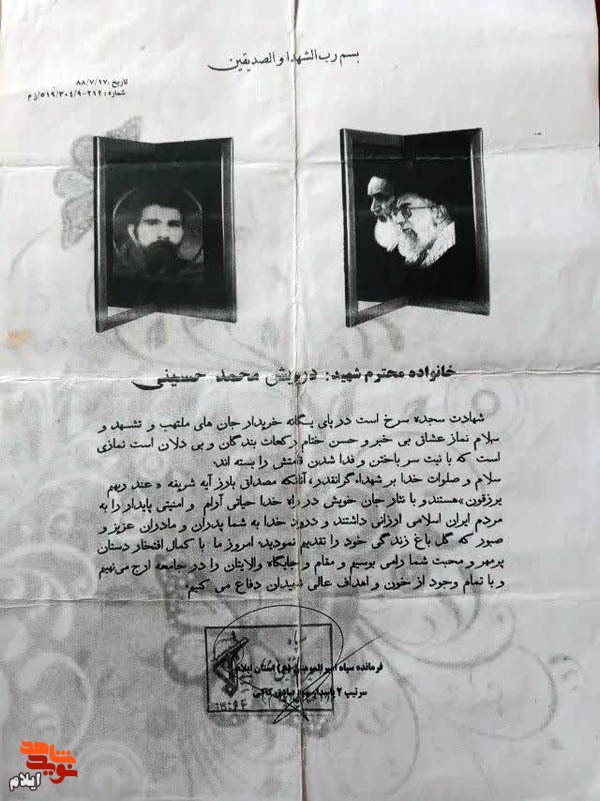 بسم رب الشهدا والصدیقین
تاریخ: ۸۸/۷/۱۷
شماره: ۲۱۲-۵۱۹/۳۰۴/۹/ز م
خانواده محترم شهید: درویش محمد حسینی
شهادت سجده سرخ است در پای یگانه خریدار جان های ملتهب و تشهد و
سلام نماز عشاق بی خبر و حسن ختام رکعات بندگان و بی دلان است نمازی
است که با نیت سر باختن و فدا شدن قامتش را بسته اند:
سلام و صلوات خدا بر شهداء گرانقدر، آنانکه مصداق بارز آیه شریفه « عند ربهم
یرزقون» هستند و با نثار جان خویش در راه خدا حیاتی آرام و امنیتی پایدار را به
مردم ایران اسلامی ارزانی داشتند و درود خدا به شما پدران و مادران عزیز و
صبور که گل باغ زندگی خود را تقدیم نمودید؛ امروز ما با کمال افتخار دستان
پرمهر و محبت شما رامی بوسیم و مقام و جایگاه والایتان را در جامعه ارج می نهیم
و با تمام وجود از خون و اهداف عالی شهیدان دفاع می کنیم.
فرمانده سپاه امیرالمومنین استان ایلام
سرتیپ ۲ پاسدار
نوید شاهد
ایلام